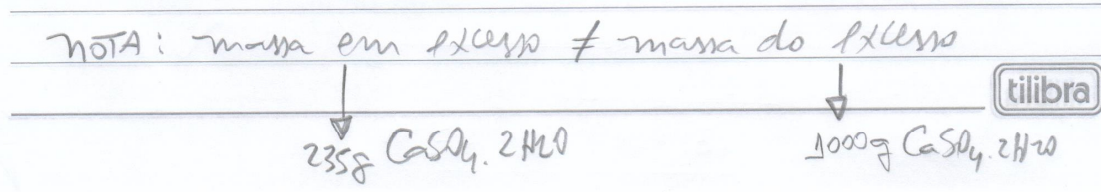 NOTA: massa em excesso ≠ massa do excesso
tilibra
235g CaSO4. 2H2O
1000g CaSO4. 2H2O